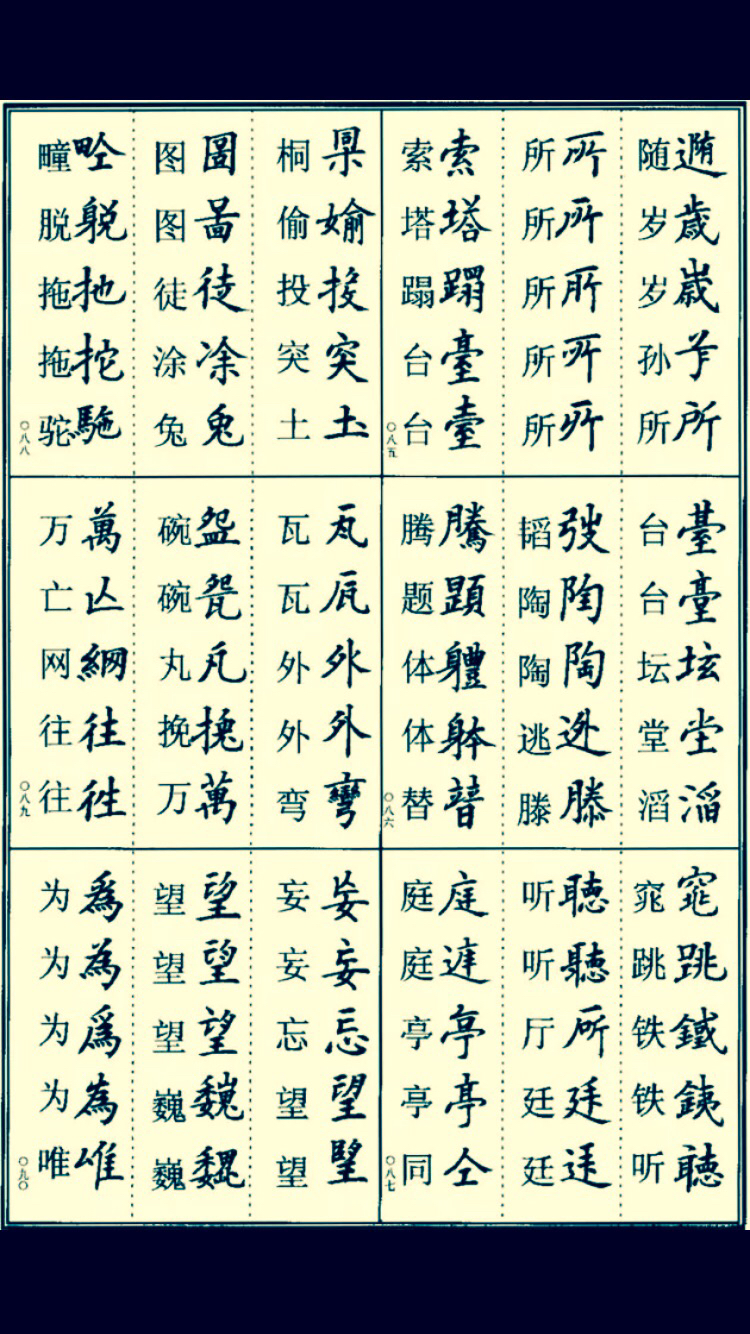 遀歳歳所
随岁岁孙所
所所所所所
所所所所所
索塔蹋臺臺
索塔蹋台台
〇八五
臺臺坛堂滔
台台坛堂滔
弢陶陶迯滕
韬陶陶逃滕
騰題軆躰朁
腾题体体替
〇八六
窕跳鐵銕聽
窕跳铁铁听
聽聽所廷
听听厅廷廷
庭亭亭仝
庭庭亭亭同
〇八七
媮投突土
桐偷投突土
圖啚徒凃兔
图图徒涂兔
扡拕駞
疃脱拖拖驼
〇八八
瓦外外彎
瓦瓦外外弯
盌挽萬
碗碗丸挽万
萬亾網往徃
万亡网往往
〇八九
妄妄忘望朢
妄妄忘望望
望望望巍
望望望巍巍
爲為爲為唯
为为为为唯
〇九〇